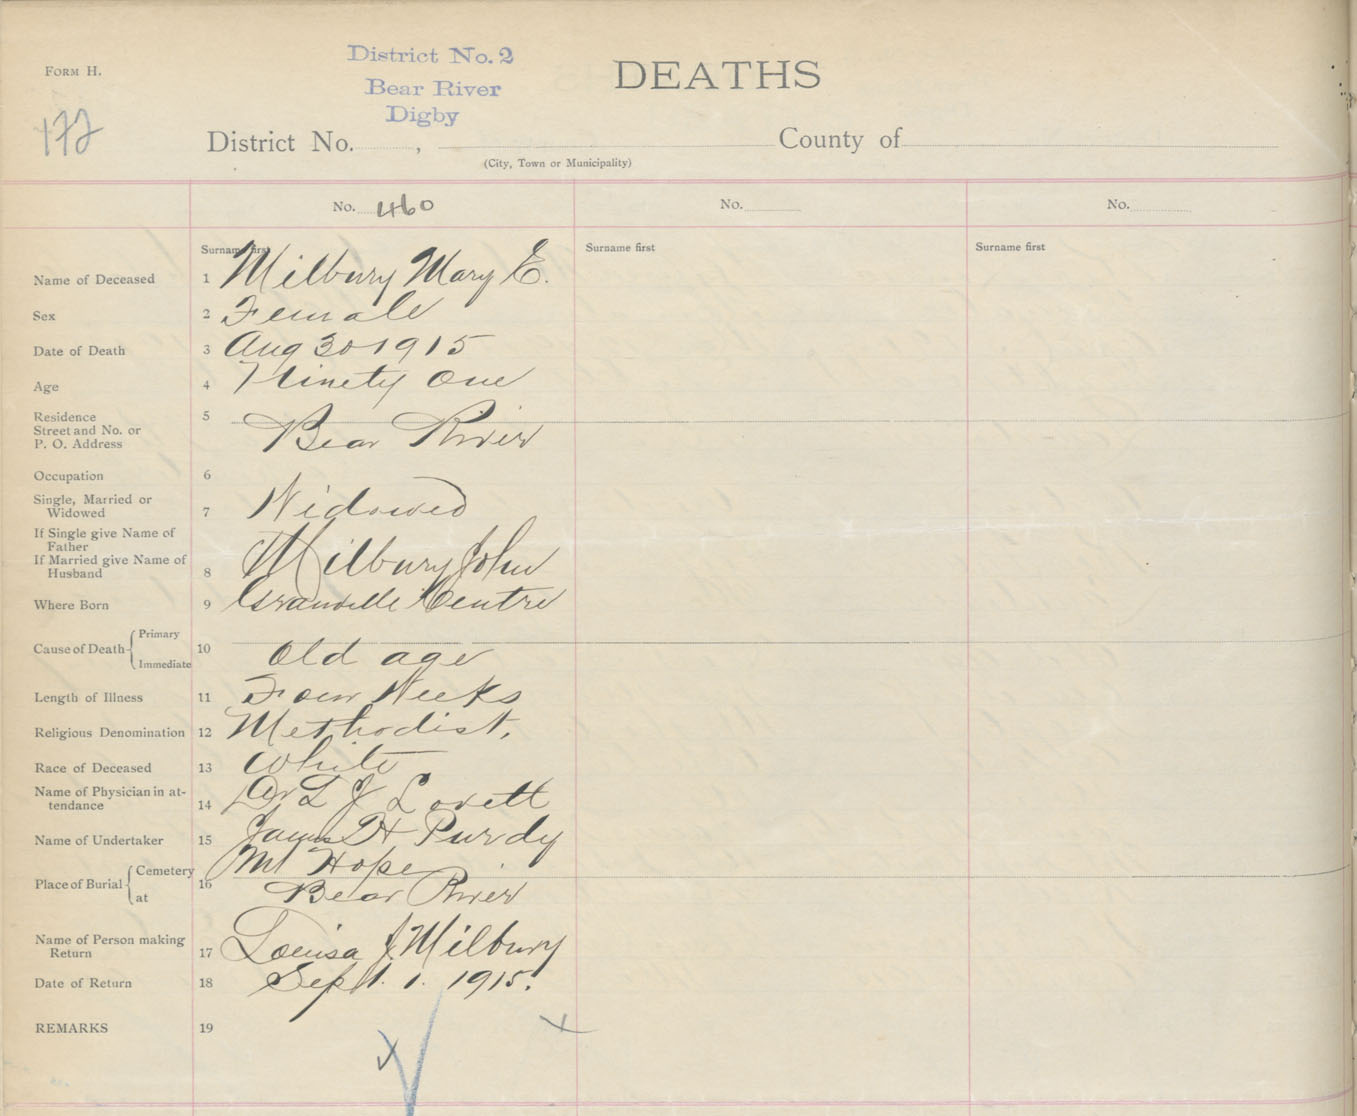 FORM H.
District No. 2
Bear River
Digby
DEATHS
172
District No. , County of
(City, Town or Municipality)
No. 460 No. No.
Surname first Surname first Surname first
Name of Deceased 1 Milbury Mary E.
Sex 2 Female
Date of Death 3 Aug 30 1915
Age 4 Ninety One
Residence
Street and No. or
P. O. Address 5 Bear River
Occupation 6
Single, Married or
Widowed 7 Widowed
If Single give Name of
Father
If Married give Name of
Husband 8 Milbury John
Where Born 9 Granville Centre
Cause of Death { Primary
Immediate 10 Old age
Length of Illness 11 Four Weeks
Religious Denomination 12 Methodist.
Race of Deceased 13 White
Name of Physician in at-
tendance 14 Dr L J Lovett
Name of Undertaker 15 James H Purdy
Place of Burial { Cemetery 16 Mt Hope
at Bear River
Name of Person making
Return 17 Louisa J. Milbury
Date of Return 18 Sept. 1. 1915.
REMARKS 19